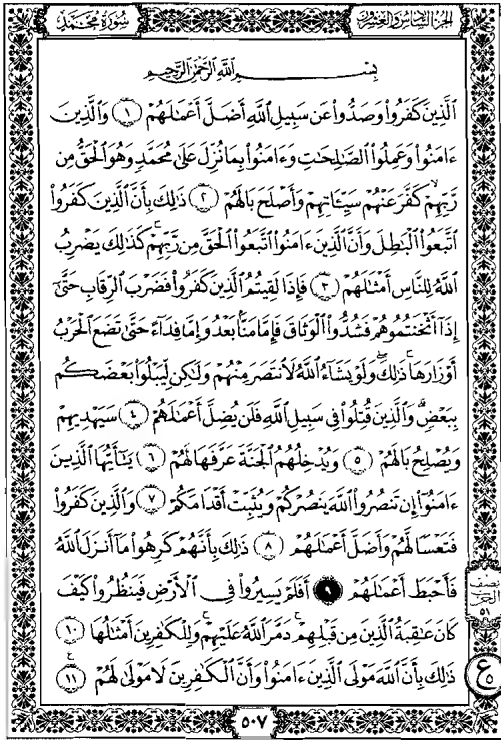 سُورَةُ مُحَمَّد
الجُزْءُ السَّادِسُ وَالعِشْرُونَ
بِسْمِ ٱللَّهِ ٱلرَّحْمَٰنِ ٱلرَّحِيمِ
ٱلَّذِينَ كَفَرُوا۟ وَصَدُّوا۟ عَن سَبِيلِ ٱللَّهِ أَضَلَّ أَعْمَٰلَهُمْ ١ وَٱلَّذِينَ
ءَامَنُوا۟ وَعَمِلُوا۟ ٱلصَّٰلِحَٰتِ وَءَامَنُوا۟ بِمَا نُزِّلَ عَلَىٰ مُحَمَّدٍ وَهُوَ ٱلْحَقُّ مِن
رَّبِّهِمْ ۙ كَفَّرَ عَنْهُمْ سَيِّـَٔاتِهِمْ وَأَصْلَحَ بَالَهُمْ ٢ ذَٰلِكَ بِأَنَّ ٱلَّذِينَ كَفَرُوا۟
ٱتَّبَعُوا۟ ٱلْبَٰطِلَ وَأَنَّ ٱلَّذِينَ ءَامَنُوا۟ ٱتَّبَعُوا۟ ٱلْحَقَّ مِن رَّبِّهِمْ ۚ كَذَٰلِكَ يَضْرِبُ
ٱللَّهُ لِلنَّاسِ أَمْثَٰلَهُمْ ٣ فَإِذَا لَقِيتُمُ ٱلَّذِينَ كَفَرُوا۟ فَضَرْبَ ٱلرِّقَابِ حَتَّىٰٓ
إِذَآ أَثْخَنتُمُوهُمْ فَشُدُّوا۟ ٱلْوَثَاقَ فَإِمَّا مَنًّۢا بَعْدُ وَإِمَّا فِدَآءً حَتَّىٰ تَضَعَ ٱلْحَرْبُ
أَوْزَارَهَا ۚ ذَٰلِكَ ۖ وَلَوْ يَشَآءُ ٱللَّهُ لَٱنتَصَرَ مِنْهُمْ وَلَٰكِن لِّيَبْلُوَا۟ بَعْضَكُم
بِبَعْضٍ ۗ وَٱلَّذِينَ قُتِلُوا۟ فِى سَبِيلِ ٱللَّهِ فَلَن يُضِلَّ أَعْمَٰلَهُمْ ٤ سَيَهْدِيهِمْ
وَيُصْلِحُ بَالَهُمْ ٥ وَيُدْخِلُهُمُ ٱلْجَنَّةَ عَرَّفَهَا لَهُمْ ٦ يَٰٓأَيُّهَا ٱلَّذِينَ
ءَامَنُوٓا۟ إِن تَنصُرُوا۟ ٱللَّهَ يَنصُرْكُمْ وَيُثَبِّتْ أَقْدَامَكُمْ ٧ وَٱلَّذِينَ كَفَرُوا۟
فَتَعْسًا لَّهُمْ وَأَضَلَّ أَعْمَٰلَهُمْ ٨ ذَٰلِكَ بِأَنَّهُمْ كَرِهُوا۟ مَآ أَنزَلَ ٱللَّهُ
فَأَحْبَطَ أَعْمَٰلَهُمْ ٩ أَفَلَمْ يَسِيرُوا۟ فِى ٱلْأَرْضِ فَيَنظُرُوا۟ كَيْفَ
كَانَ عَٰقِبَةُ ٱلَّذِينَ مِن قَبْلِهِمْ ۚ دَمَّرَ ٱللَّهُ عَلَيْهِمْ ۖ وَلِلْكَٰفِرِينَ أَمْثَٰلُهَا ١٠
ذَٰلِكَ بِأَنَّ ٱللَّهَ مَوْلَى ٱلَّذِينَ ءَامَنُوا۟ وَأَنَّ ٱلْكَٰفِرِينَ لَا مَوْلَىٰ لَهُمْ ١١
نصف
الحزب
٥١
ع
٥
٥٠٧